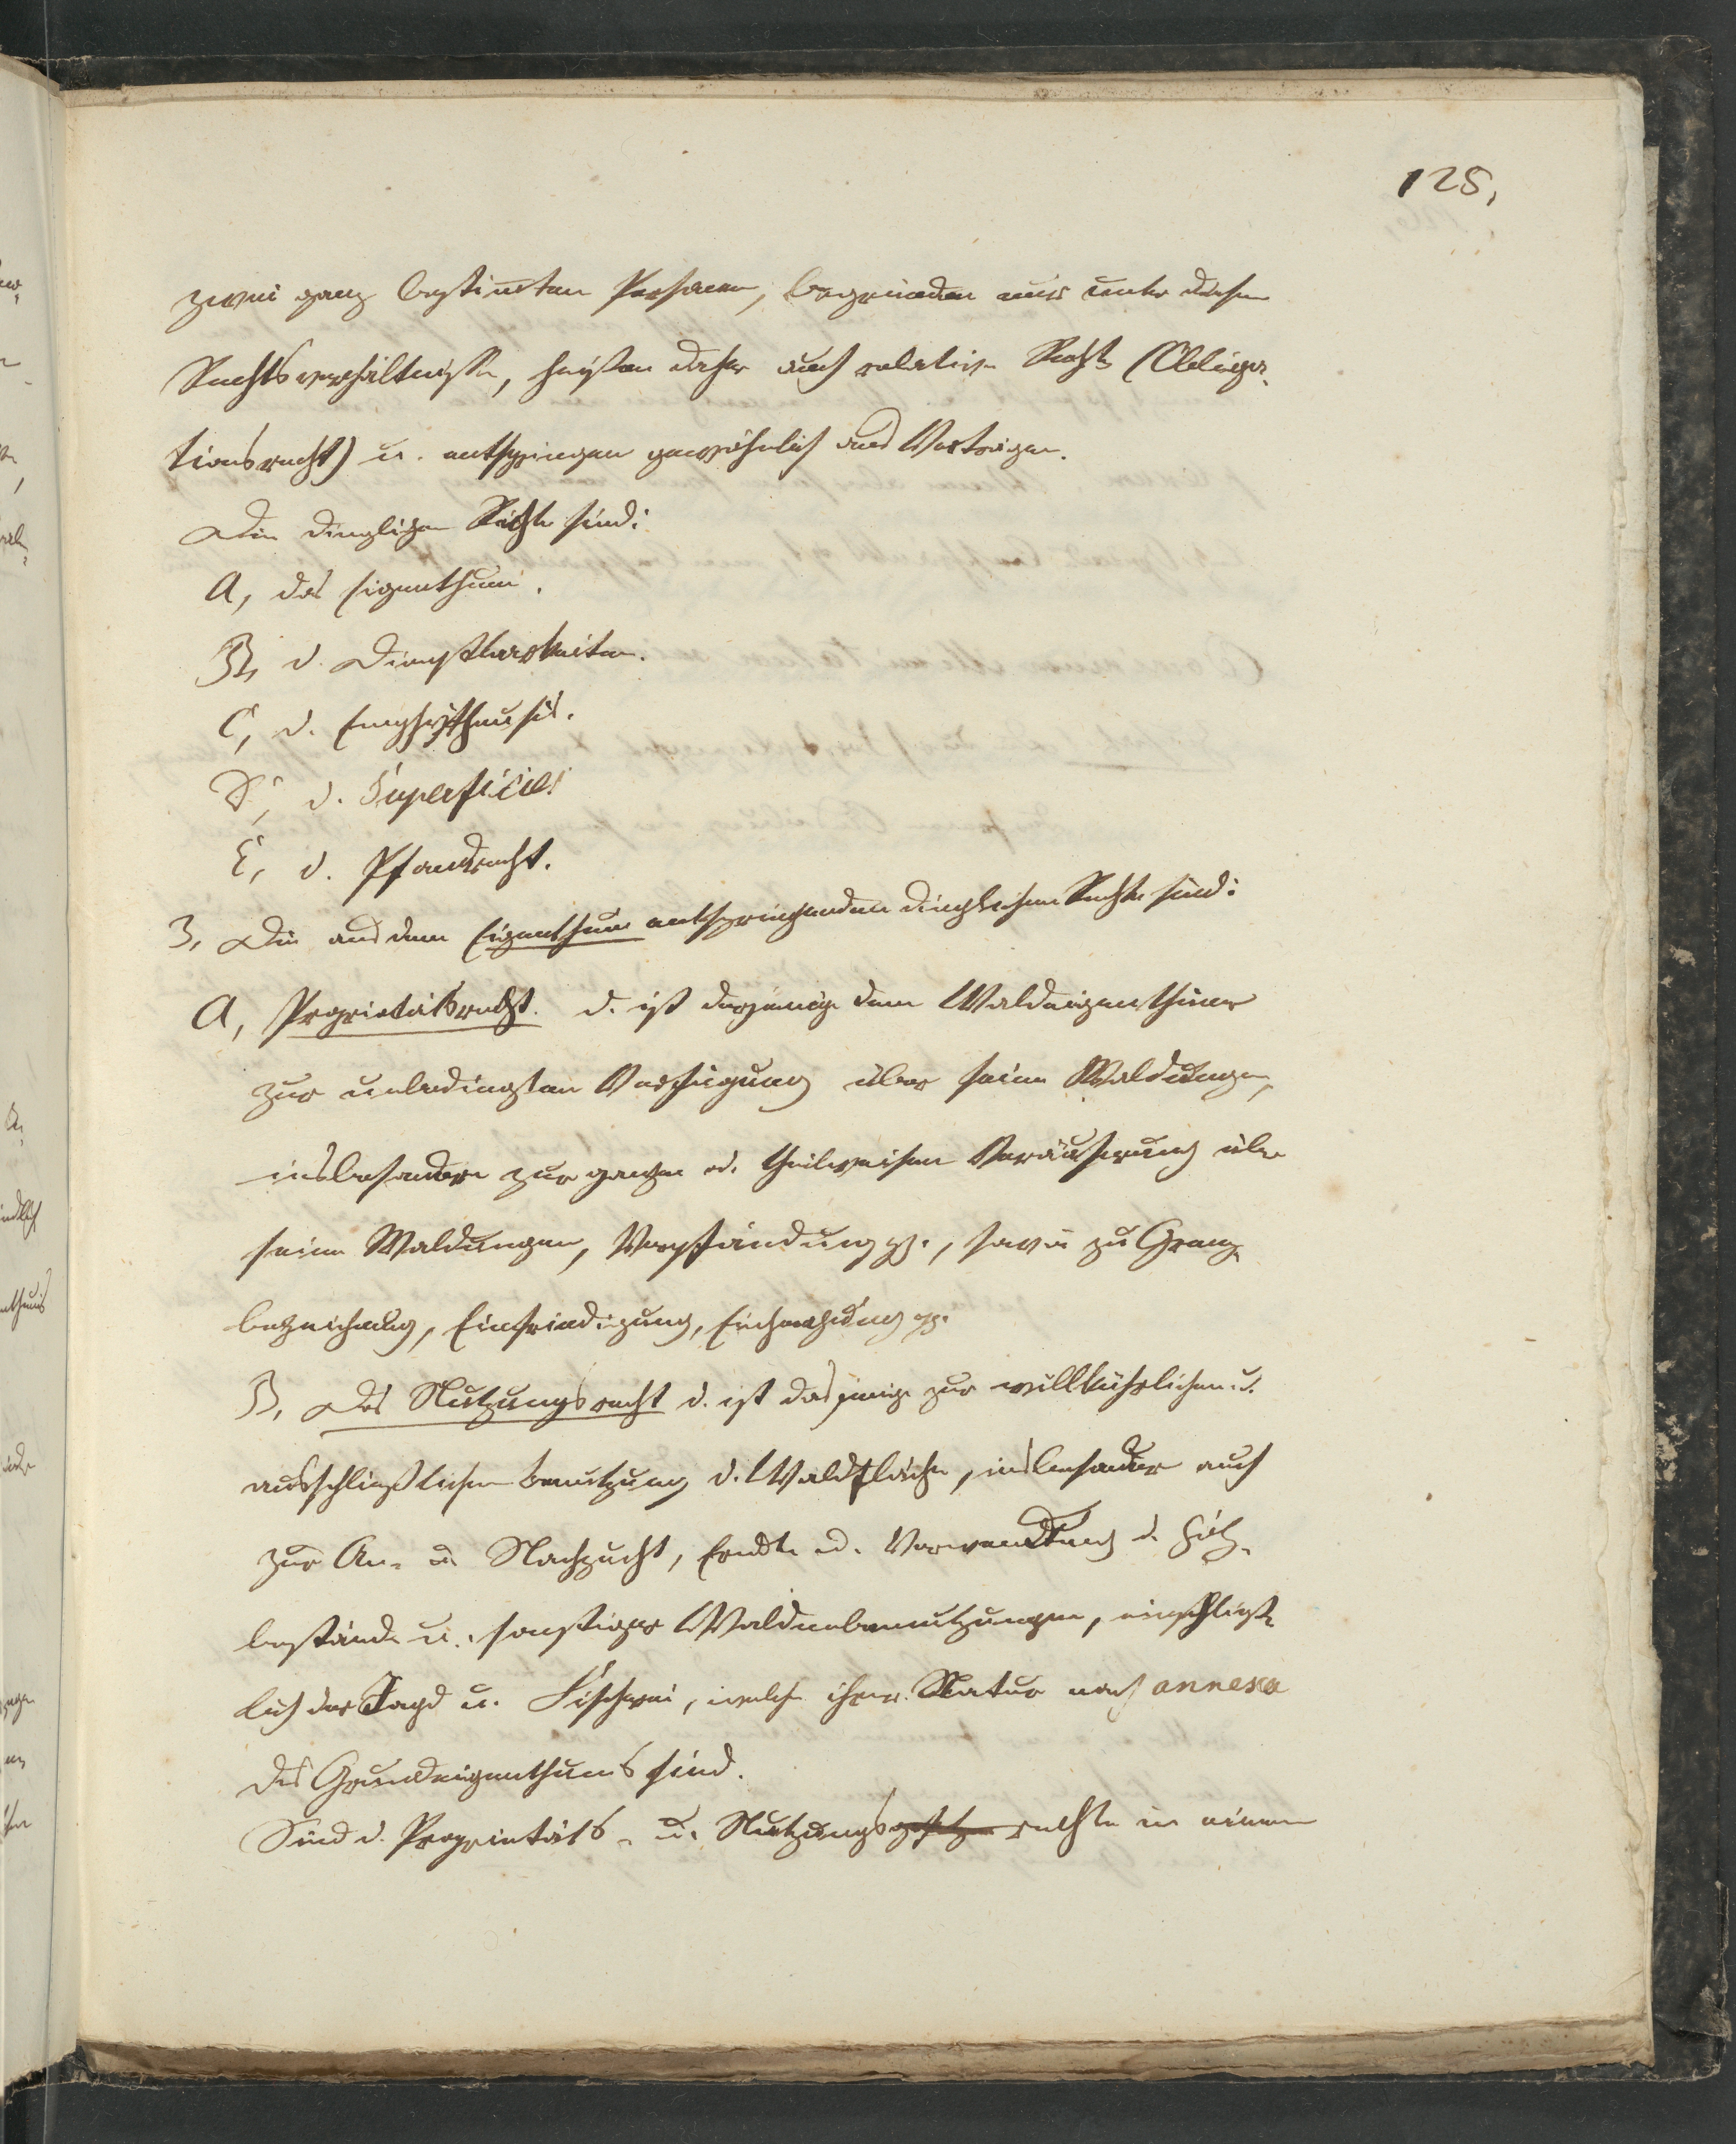 125,
zwei ganz bestimten Personen, begründen nur unter diesen
Rechtsverhältnisse, heißen daher auch relative Rechte (Obliga-
tionsrecht) u. entspringen gewöhnlich aus Verträgen.
Die dinglichen Rechte sind:
A, das Eigenthum.
B, d. Dienstbarkeiten.
C, d. Emphytheusis.
D, d. Superficies
E, d. Pfandrecht.
3, Die aus dem Eigenthum entspringenden dinglichen Rechte sind:
A, Proprietätsrecht. d. ist dasjenige dem Waldeigenthümer
zur unbedingten Verfügung über seine Waldungen,
insbesondere zur ganzen od. theilweisen Veräußerung über
seine Waldungen, Verpfändung pp., sowie zu Grenz-
bezeichnung, Einfriedigung, pp.
B, Das Nutzungsrecht d. ist dasjenige zur willkührlichen u.
ausschließlichen Benutzung d. Waldfläche, insbesondere auch
zur An- u. Nachzucht, Erndte u. Verwendung d. Holz-
bestände u. sonstiger Waldnebennutzungen, einschließ-
lich der Jagd u. Fischerei, welche ihrer Natur nach annexa
des Grundeigenthums sind.
Sind d. Proprietäts- u. Nutzungsgesetze rechte in einem